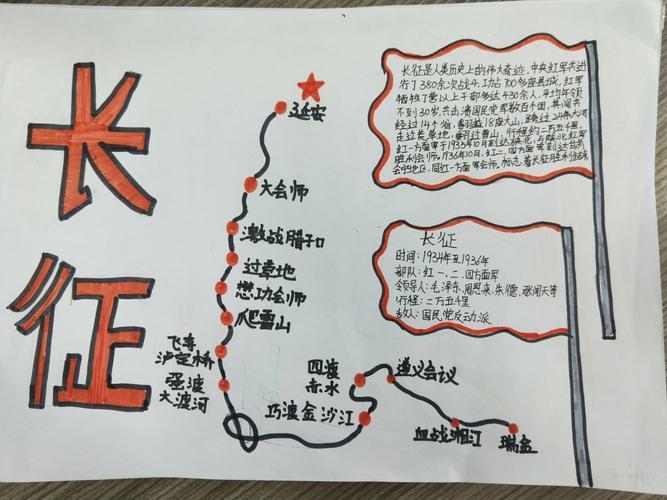 长
征
延安
大会师
激战腊子口
过草地
懋功会师
爬雪山
飞夺
泸定桥
强渡
大渡河
巧渡金沙江
四渡
赤水
遵义会议
血战湘江
瑞金
长征是人类历史上的伟大奇迹,中央红军共进
行了380余次战斗,攻占700多座县城,红军
牺牲了营以上干部多达430余人,平均年领
不到30岁,共击溃国民党军数百个团,其间共
经过14个省,翻越18座大山,跨过24条大河
走过荒草地,翻过雪山,行程约二万五千里,
红一方面军于1935年10月到达陕北,与陕北红军
胜利会师。1936年10月,红二、四方面军到达甘肃
会宁地区,同红一方面军会师。标志着长征胜利结束
长征
时间:1934年至1936年
部队:红一、二、四方面军
领导人:毛泽东、周恩来、朱德、张闻天等
行程:二万五千里
敌人:国民党反动派